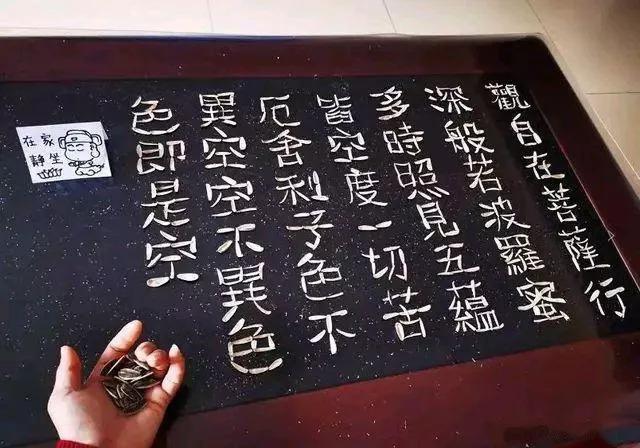 觀自在菩薩行
深般若波羅蜜
多時照見五蘊
皆空度一切苦
厄舍利子色不
異空空不異色
色即是空
在家
静坐